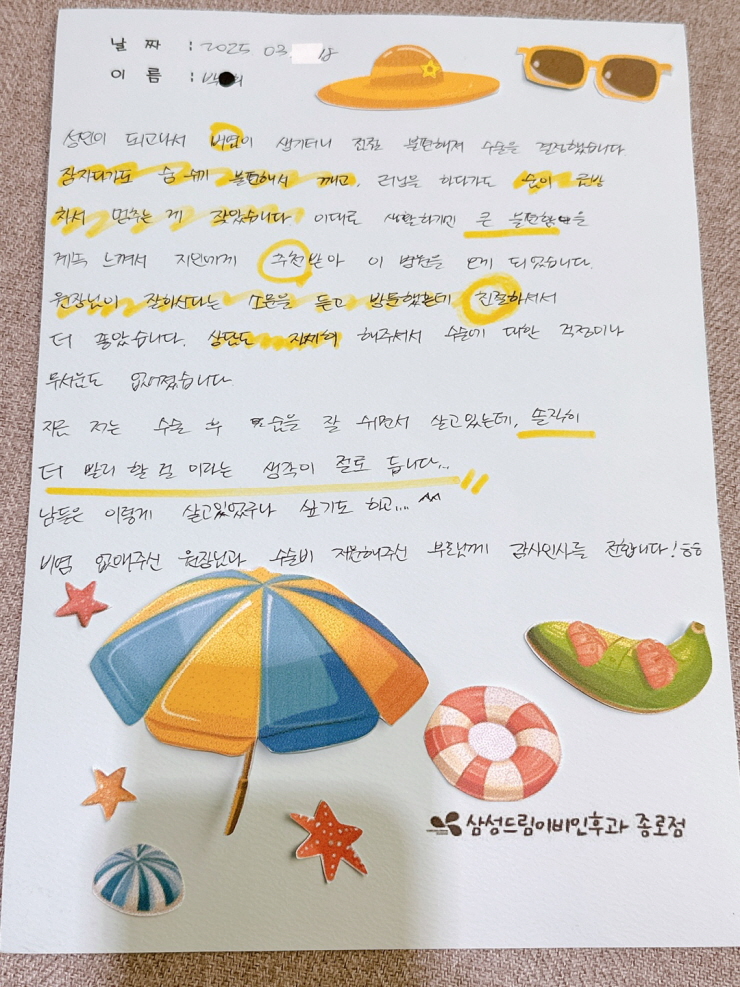 날 짜 : 2025 03
이 름 : 박
성인이 되고나서 비염이 생기더니 점점 불편해져 수술을 결정했습니다.
잠자다가도 숨 쉬기 불편해서 깨고, 러닝을 하다가도 숨이 금방
차서 멈추는 게 잦았습니다. 이대로 생활하기엔 큰 불편함을
계속 느껴서 지인에게 추천받아 이 병원을 오게 되었습니다.
원장님이 잘하신다는 소문을 듣고 방문했는데 친절하셔서
더 좋았습니다. 상담도 자세히 해주셔서 수술에 대한 걱정이나
무서움도 없어졌습니다.
지금 저는 수술 후 숨을 잘 쉬면서 살고있는데, 솔직히
더 빨리 할 걸 이라는 생각이 절로 듭니다...
남들은 이렇게 살고있었구나 싶기도 하고... ^^
비염 없애주신 원장님과 수술비 지원해주신 부모님께 감사인사를 전합니다! ㅎㅎ
삼성드림이비인후과 종로점